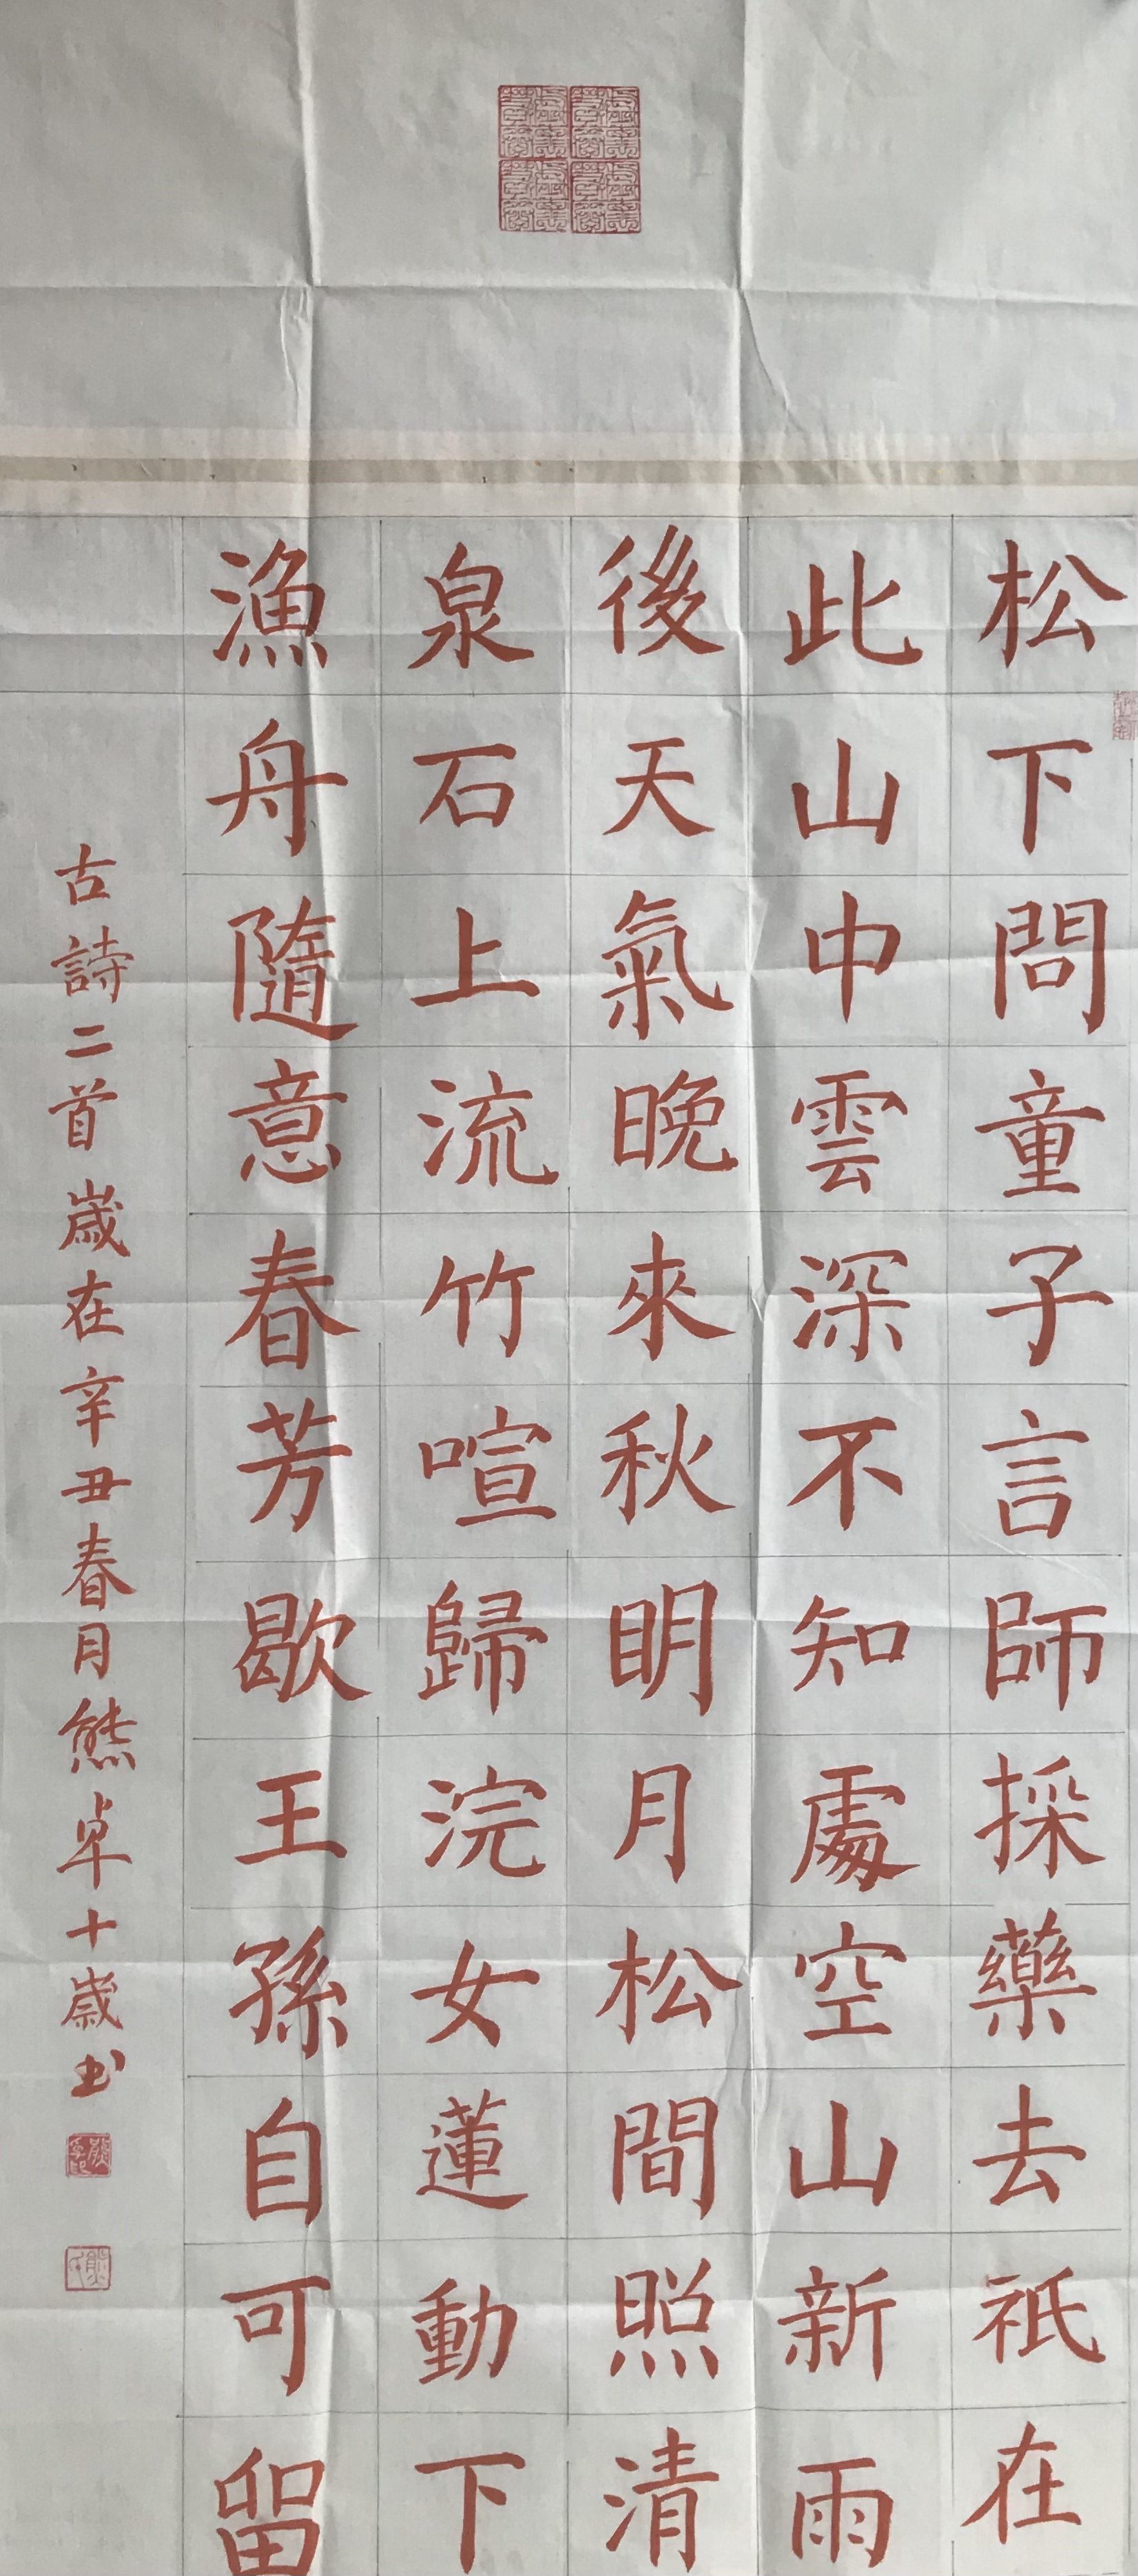 松下問童子言師採藥去祇在
此山中雲深不知處空山新雨
後天氣晚來秋明月松間照清
泉石上流竹喧歸浣女蓮動下
漁舟隨意春芳歇王孫自可留
古詩二首歲在辛丑春月熊卓十歲书